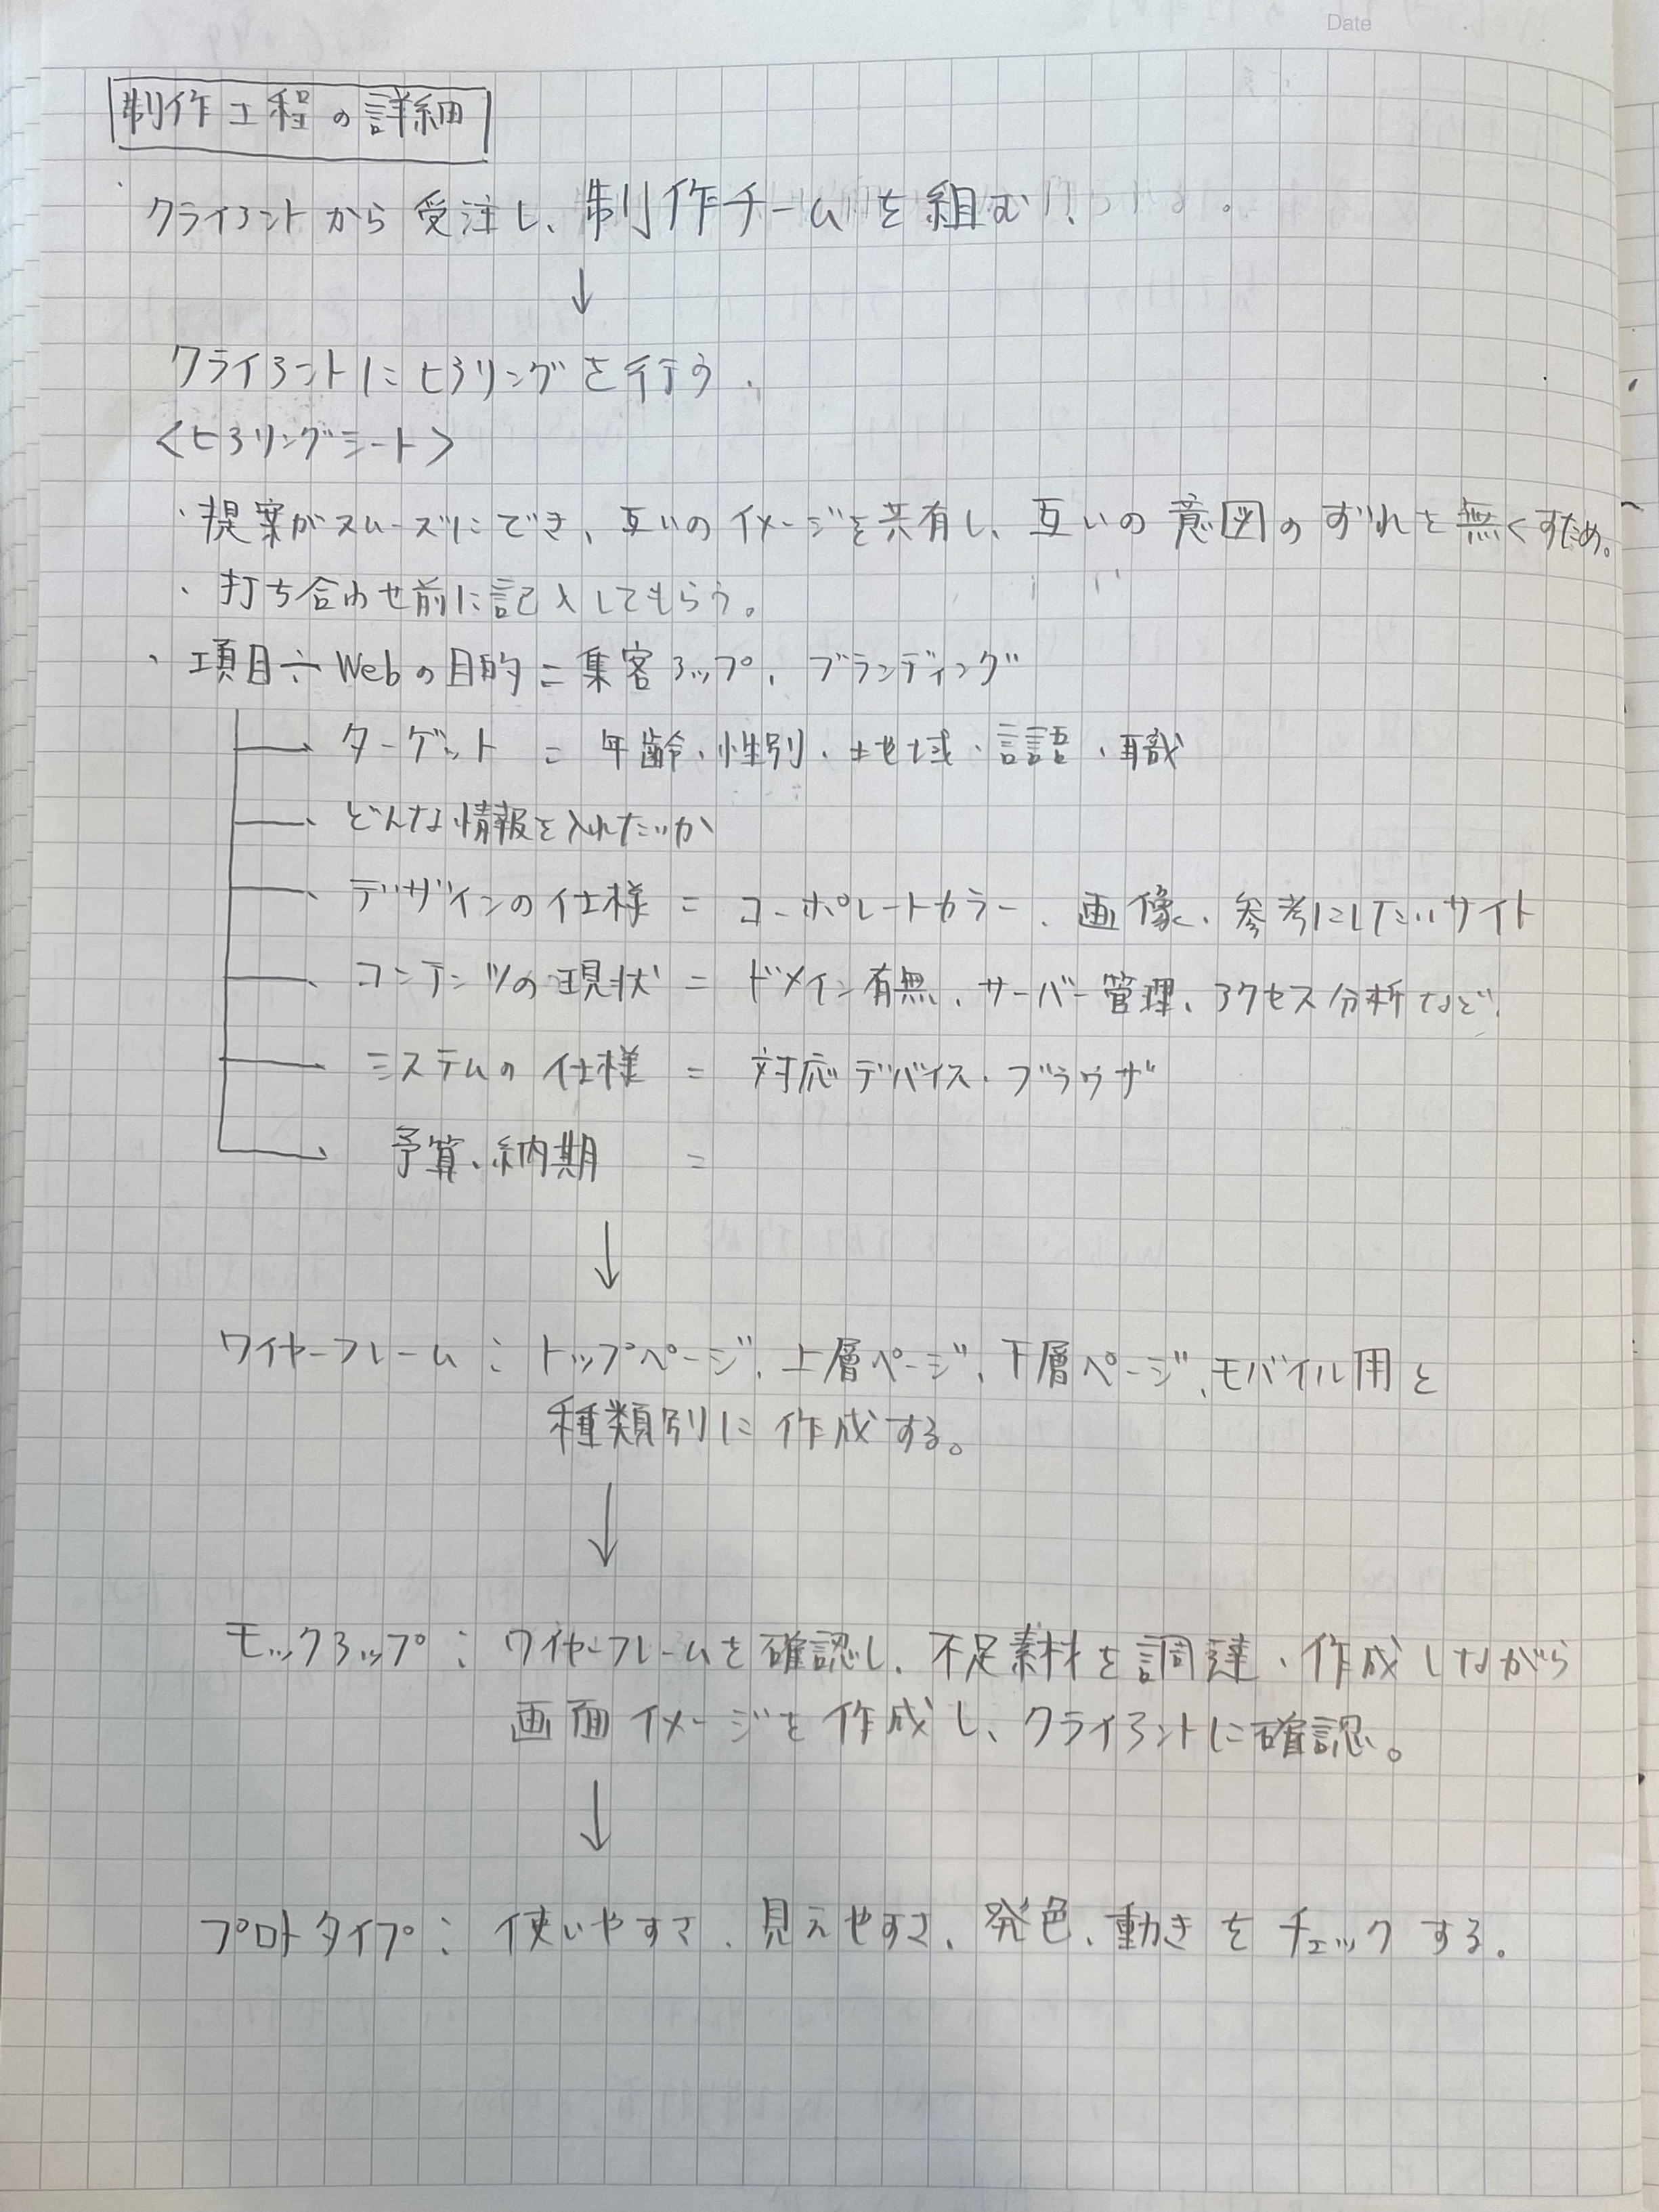 Date
制作工程の詳細
クライアントから受注し、制作チームを組む。
↓
クライアントにヒアリングを行う.
<ヒアリングシート>
・提案がスムーズにでき、互いのイメージを共有し、互いの意図のずれを無くすため。
・打ち合わせ前に記入してもらう。
・項目÷Webの目的=集客アップ、ブランディング
ターゲット = 年齢・性別・地域・言語・職
どんな情報を入れたいか
デザインの仕様 = コーポレートカラー、画像、参考にしたいサイト
コンテンツの現状 = ドメイン有無、サーバー管理、アクセス分析など
システムの仕様 = 対応デバイス・ブラウザ
予算、納期 =
↓
ワイヤーフレーム:トップページ、上層ページ、下層ページ、モバイル用と
種類別に作成する。
↓
モックアップ:ワイヤーフレームを確認し、不足素材を調達、作成しながら
画面イメージを作成し、クライアントに確認。
↓
プロトタイプ:使いやすさ、見えやすさ、発色、動きをチェックする。